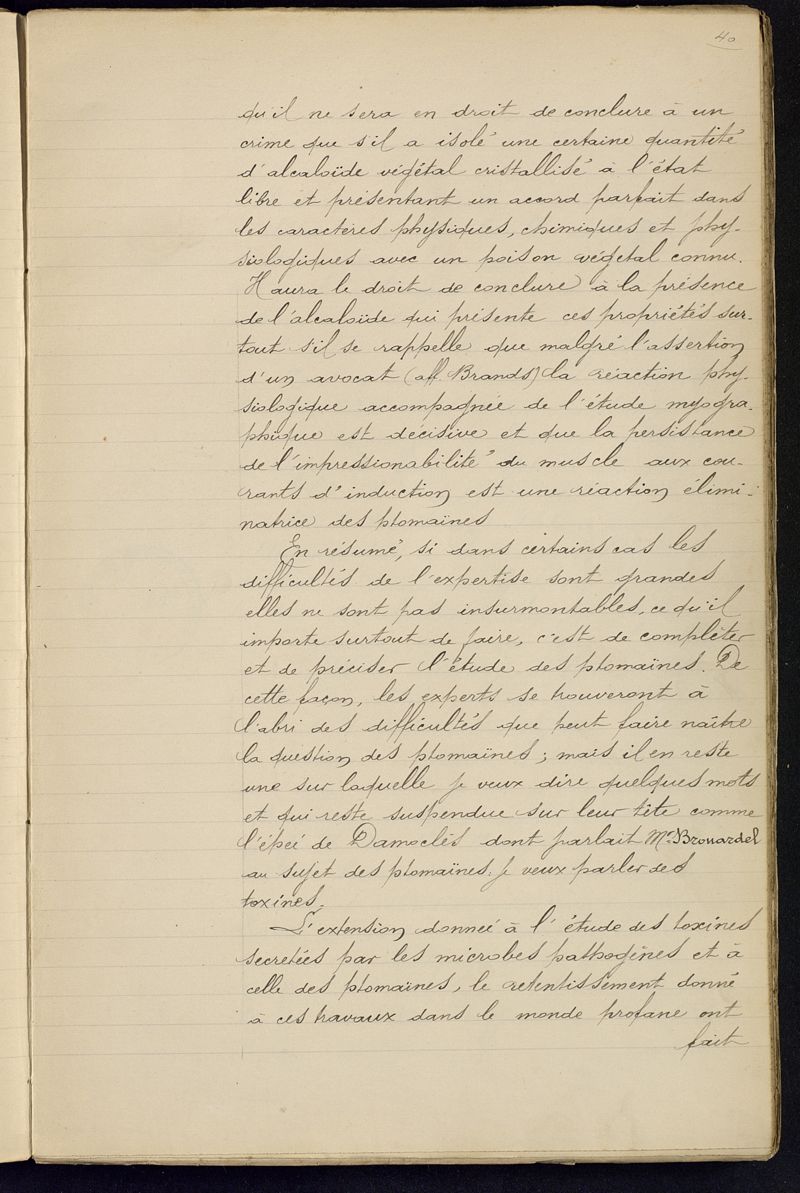 40
qu'il ne sera en droit de conclure à un
crime que s'il a isolé une certaine quantité
d'alcaloïde végétal cristallisé à l'état
libre et présentant un accord parfait dans
les caractères physiques, chimiques et phy-
siologiques avec un poison végétal connu.
Il aura le droit de conclure à la présence
de l'alcaloïde qui présente ces propriétés sur-
tout s'il se rappelle que malgré l'assertion
d'un avocat (aff. Brands) la réaction phy-
siologique accompagnée de l'étude myogra-
phique est décisive et que la persistance
de l'impressionabilité du muscle aux cou-
rants d'induction est une réaction élimi-
natrice des ptomaïnes
En résumé, si dans certains cas les
difficultés de l'expertise sont grandes
elles ne sont pas insurmontables, ce qu'il
importe surtout de faire, c'est de compléter
et de préciser l'étude des ptomaïnes. De
cette façon, les experts se trouveront à
l'abri des difficultés que peut faire naître
la question des ptomaïnes; mais il en reste
une sur laquelle je veux dire quelques mots
et qui reste suspendue sur leur tête comme
l'épée de Damoclès dont parlait Mr Brouardel
au sujet des ptomaïnes. Je veux parler des
toxines.
L'extension donnée à l'étude des toxines
secretées par les microbes pathogènes et à
celle des ptomaïnes, le retentissement donné
à ces travaux dans le monde profane ont
fait